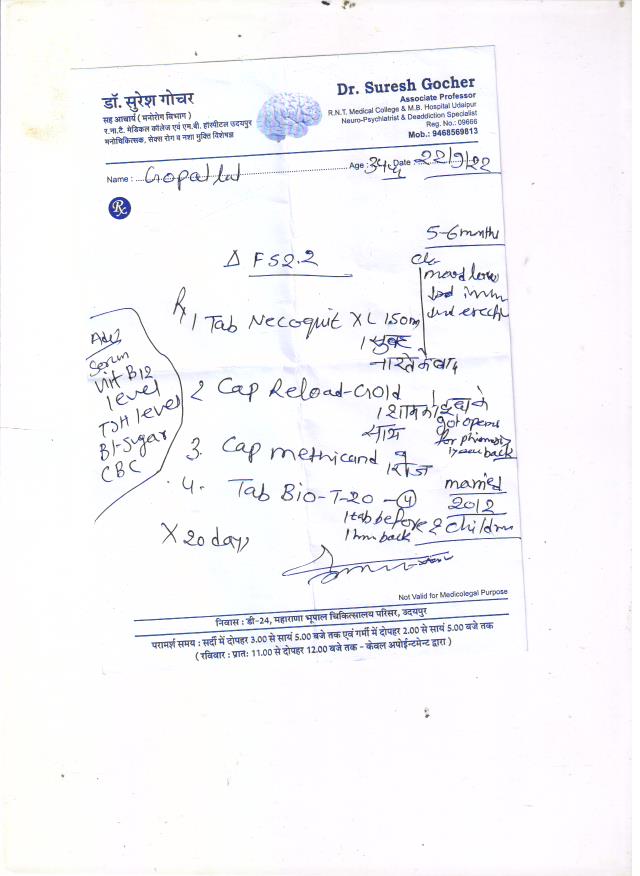 डॉ. सुरेश गोचर
सह आचार्य ( मनोरोग विभाग )
र.ना.टै. मेडिकल कॉलेज एवं एम.बी. हॉस्पीटल उदयपुर
मनोचिकित्सक, सेक्स रोग व नशा मुक्ति विशेषज्ञ
Dr. Suresh Gocher
Associate Professor
R.N.T. Medical College & M.B. Hospital Udaipur
Neuro-Psychiatrist & Deaddiction Specialist
Reg. No.: 09666
Mob.: 9468569813
Name : Gopal lal Age : 34 y Date 22/9/22
Rx
5-6 months
c/o
mood low
Δ F52.2
Rx
1 Tab Necoquit XL 150m
1 सुबह
नास्ते के बाद
2 Cap Reload-Gold
1 शाम को दूध के
साथ
got opera
for phimosis
1 year back
3. Cap methicand 1 रोज
4. Tab Bio-T-20 - 4
1 tab before
1 hr back
married
2012
2 children
X 20 days
Adv
Serum
Vit B12
level
TSH level
Bl-sugar
CBC
Not Valid for Medicolegal Purpose
निवास : डी-24, महाराणा भूपाल चिकित्सालय परिसर, उदयपुर
परामर्श समय : सर्दी में दोपहर 3.00 से सायं 5.00 बजे तक एवं गर्मी में दोपहर 2.00 से सायं 5.00 बजे तक
( रविवार : प्रातः 11.00 से दोपहर 12.00 बजे तक - केवल अपोईन्टमेन्ट द्वारा )